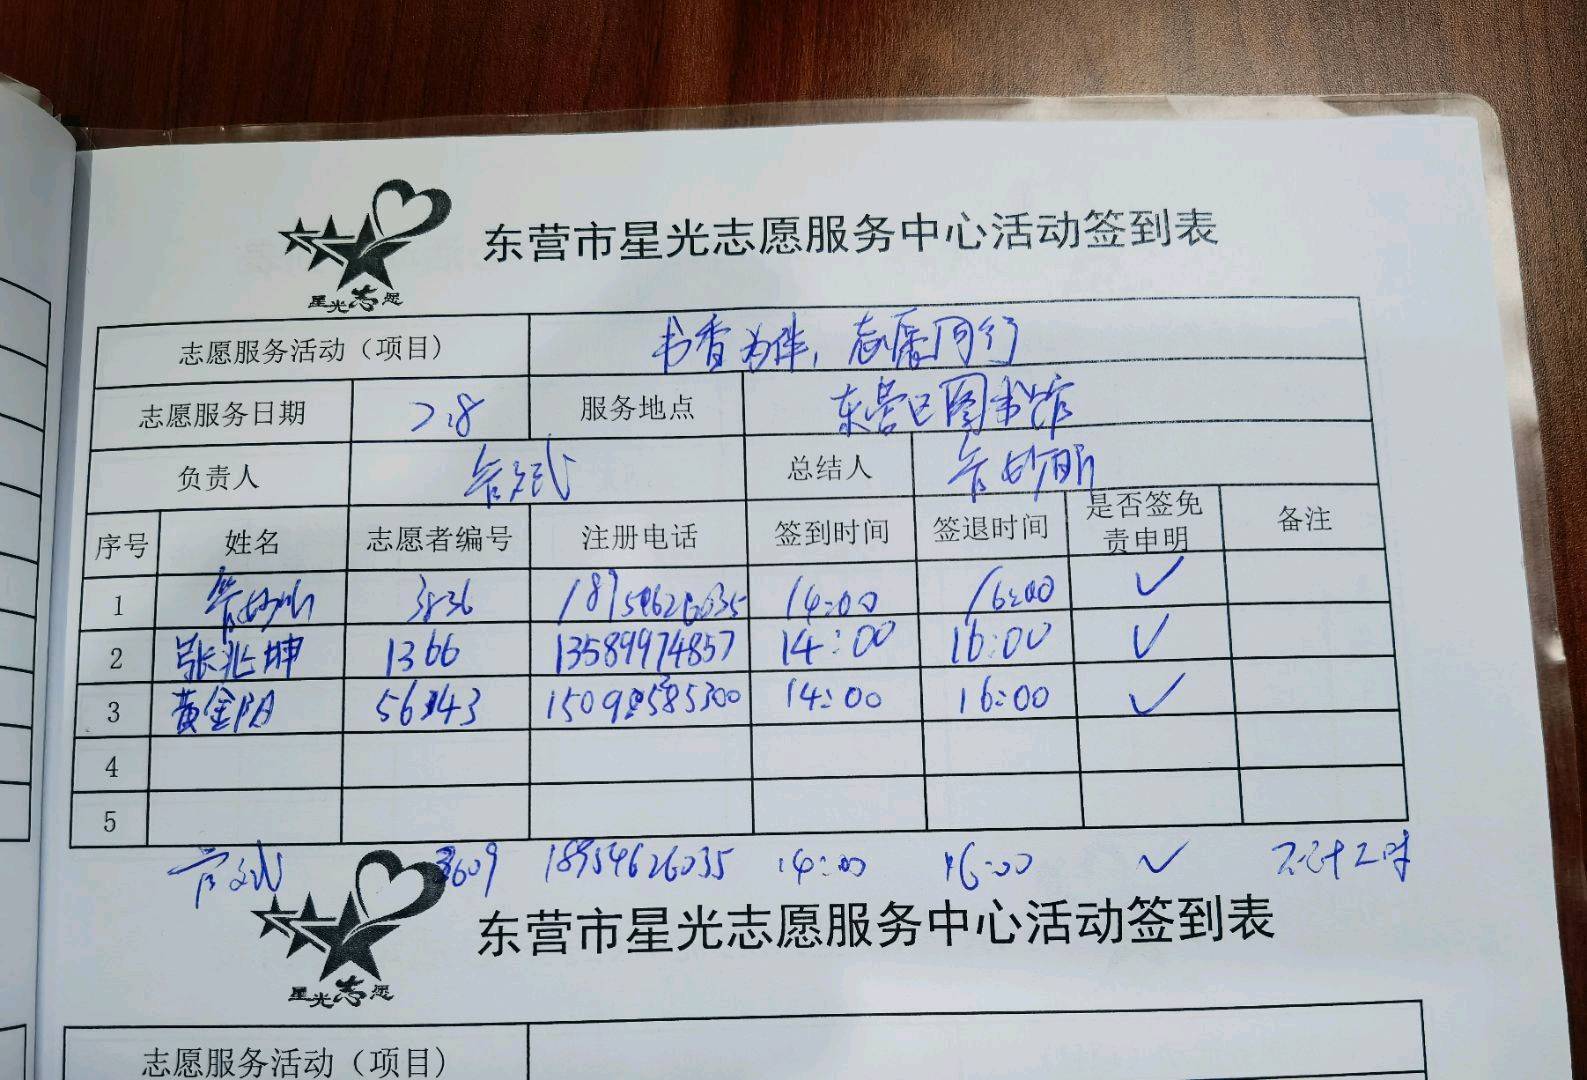 星光志愿
东营市星光志愿服务中心活动签到表
志愿服务活动（项目） 书香为伴，志愿同行
志愿服务日期 7.8 服务地点 东营区图书馆
负责人 总结人
序号 姓名 志愿者编号 注册电话 签到时间 签退时间 是否签免责申明 备注
1 3836 18954626035 14:00 16:00 ✓
2 张兆坤 1366 13589974857 14:00 16:00 ✓
3 黄金阳 14:00 16:00 ✓
4
5
3609 18954626035 14:00 16:00 ✓ 不计工时
星光志愿
东营市星光志愿服务中心活动签到表
志愿服务活动（项目）